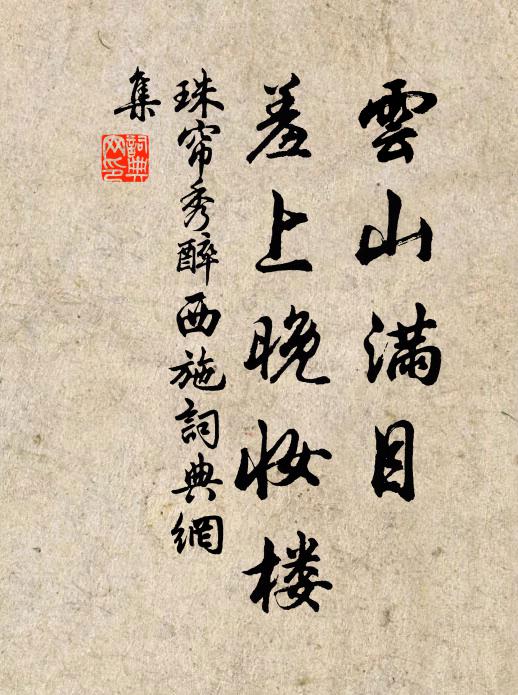 雲山滿目
羞上晚妝楼
珠帘秀醉西施詞典網
集
詞典
网印